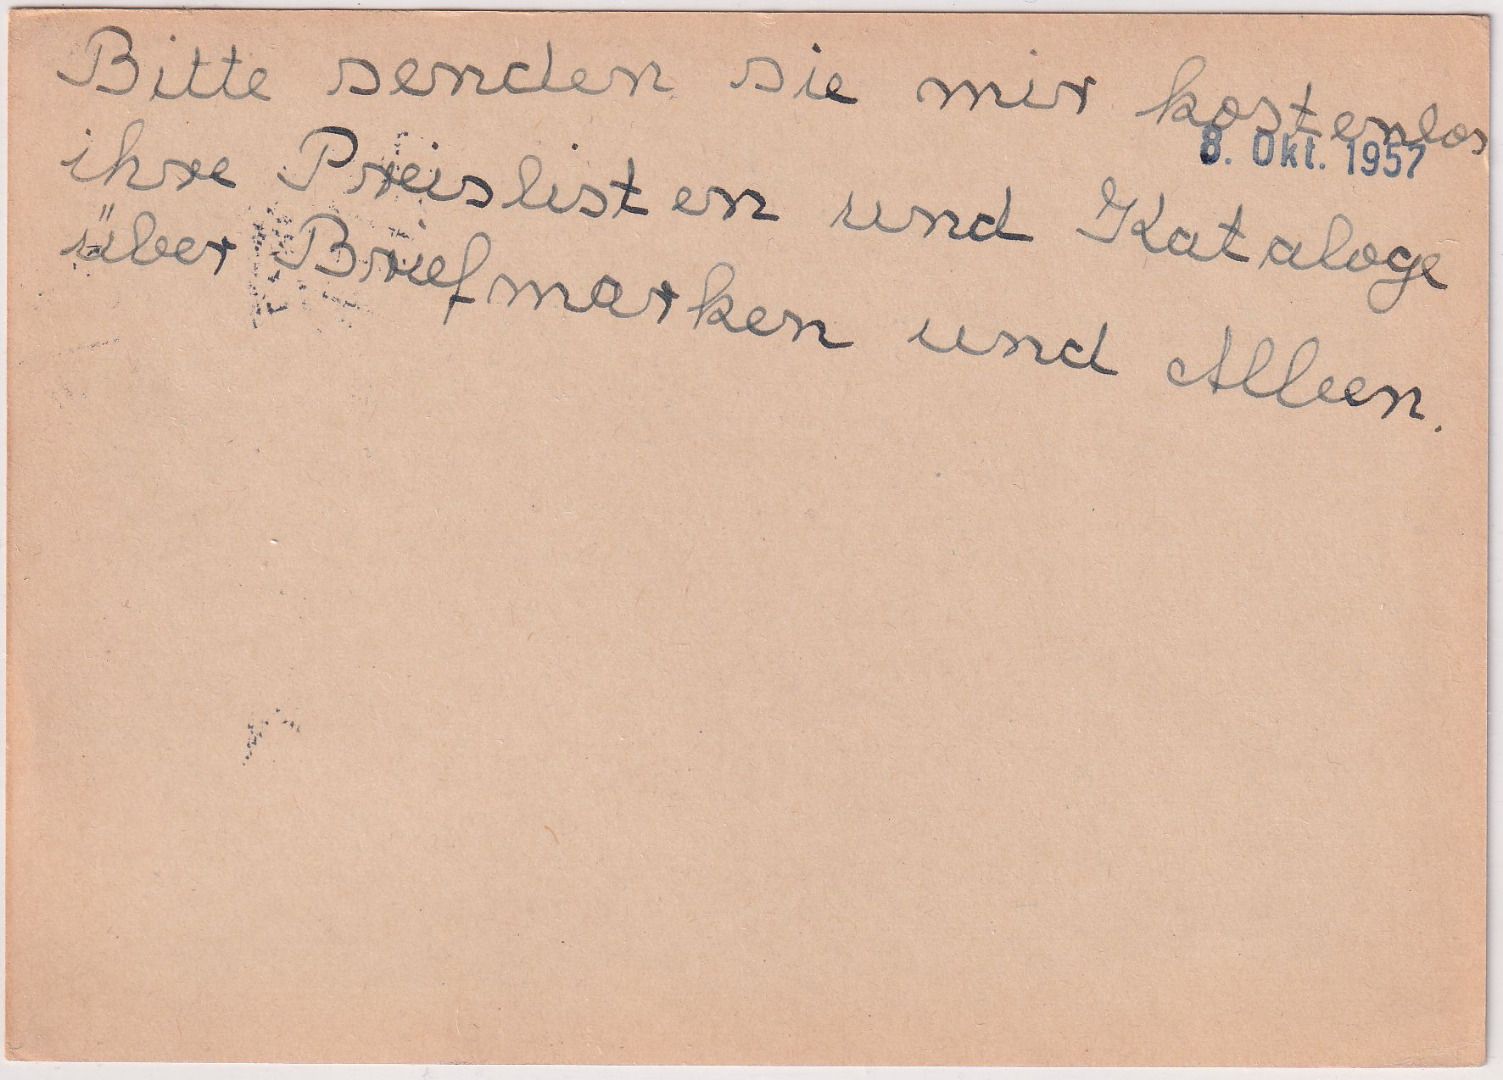 Bitte senden sie mir kostenlos
8. Okt. 1957
ihre Preislisten und Kataloge
über Briefmarken und Alben.